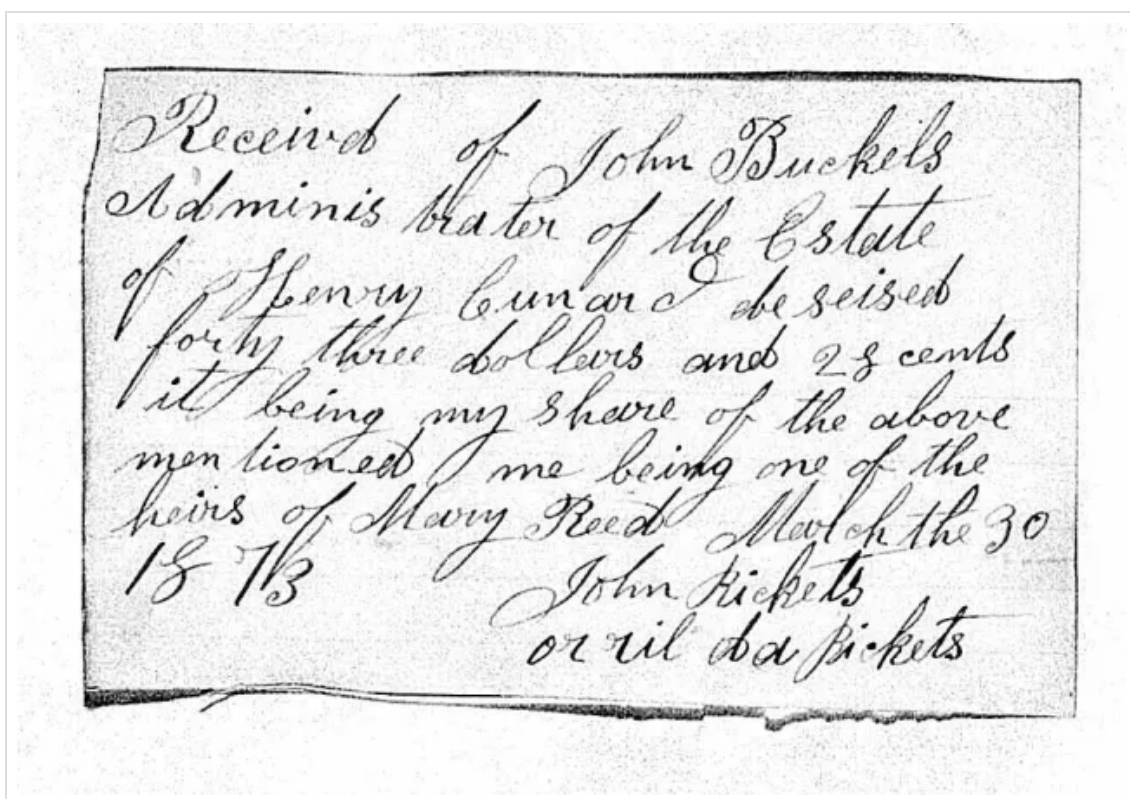 Receivd of John Buckels
Adminis trater of the Estate
of Henry Cunard deseised
forty three dollars and 28 cents
it being my share of the above
mentioned me being one of the
heirs of Mary Reed March the 30
1873 John Rickets
orrilda Rickets